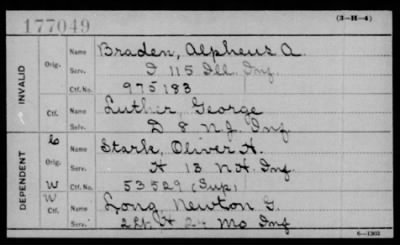 177049 (3-H-4)
INVALID
Orig. Name Braden, Alpheus A.
Serv. I 115 Ill. Inf.
Ctf. No. 975183
Ctf. Name Luther, George
Serv. D 8 N.J. Inf.
DEPENDENT
C Orig. Name Stark, Oliver H.
Serv. H 13 N.H. Inf.
W Ctf. No. 53529 (Sup)
W Ctf. Name Long Newton G.
Serv. 2 Lt. H 24 Mo Inf
6-1303